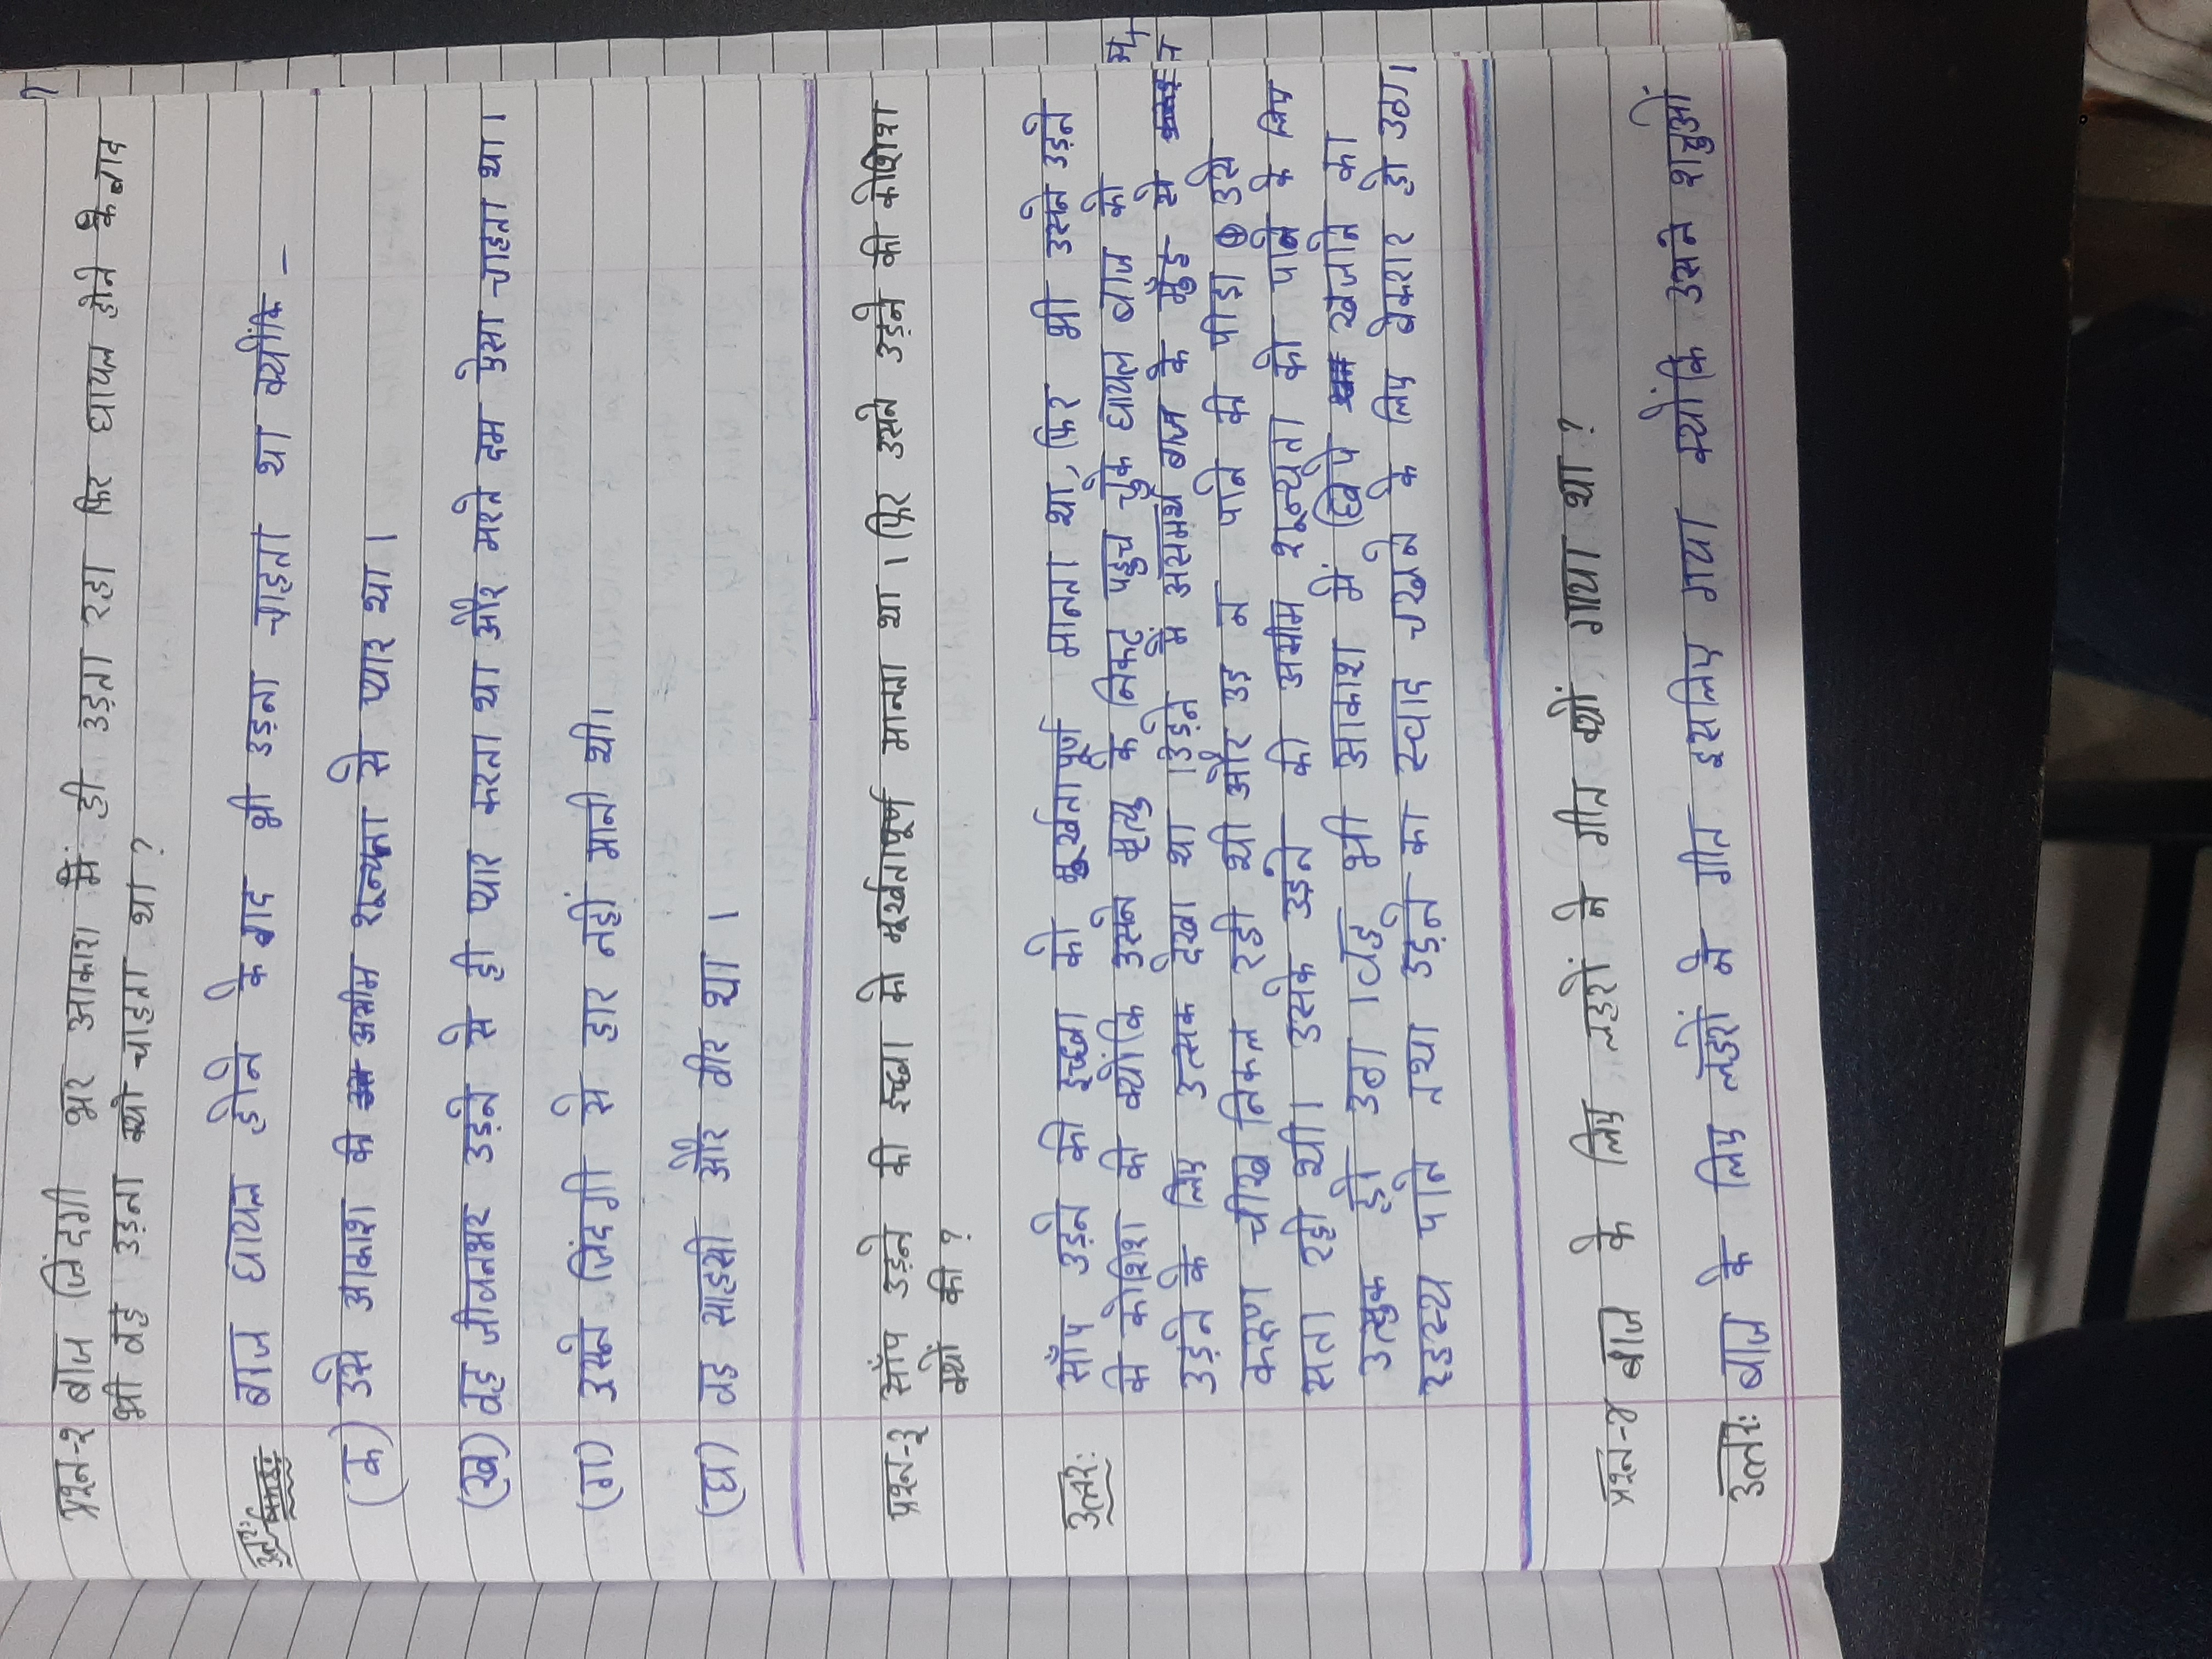 प्रश्न-२ बाज जिंदगी भर आकाश में ही उड़ता रहा फिर घायल होने के बाद
भी वह उड़ना क्यो चाहता था ?
उत्तर: बाज घायल होने के बाद भी उड़ना चाहता था क्योंकि -
(क) उसे आकाश की असीम शून्यता से प्यार था ।
(ख) वह जीवनभर उड़ने से ही प्यार करता था और मरते दम ऐसा चाहता था ।
(ग) उसने जिंदगी से हार नहीं मानी थी।
(घ) वह साहसी और वीर था ।
प्रश्न-३ साँप उड़ने की इच्छा को मूर्खतापूर्ण मानता था । फिर उसने उड़ने की कोशिश
क्यों की ?
उत्तर: साँप उड़ने की इच्छा को मूर्खतापूर्ण मानता था, फिर भी उसने उड़ने
की कोशिश की क्योंकि उसने मृत्यु के निकट पहुच चुके घायल बाज को
उड़ने के लिए उत्सक देखा था । उड़ने में असमर्थ बाज के मुँह से
करुण चीख निकल रही थी और उड़ न पाने की पीड़ा उसे
सता रही थी। उसके उड़ने की असीम शून्यता को पाने के लिए
उत्सुक हो उठा । वह भी आकाश में छिपे खजाने का
रहस्य पाने तथा उड़ने का स्वाद चखने के लिए बेकरार हो उठा।
प्रश्न-४ बाज के लिए लहरों ने गीत क्यों गाया था ?
उत्तर: बाज के लिए लहरों ने गीत इसलिए गया क्योंकि उसने शत्रुओं